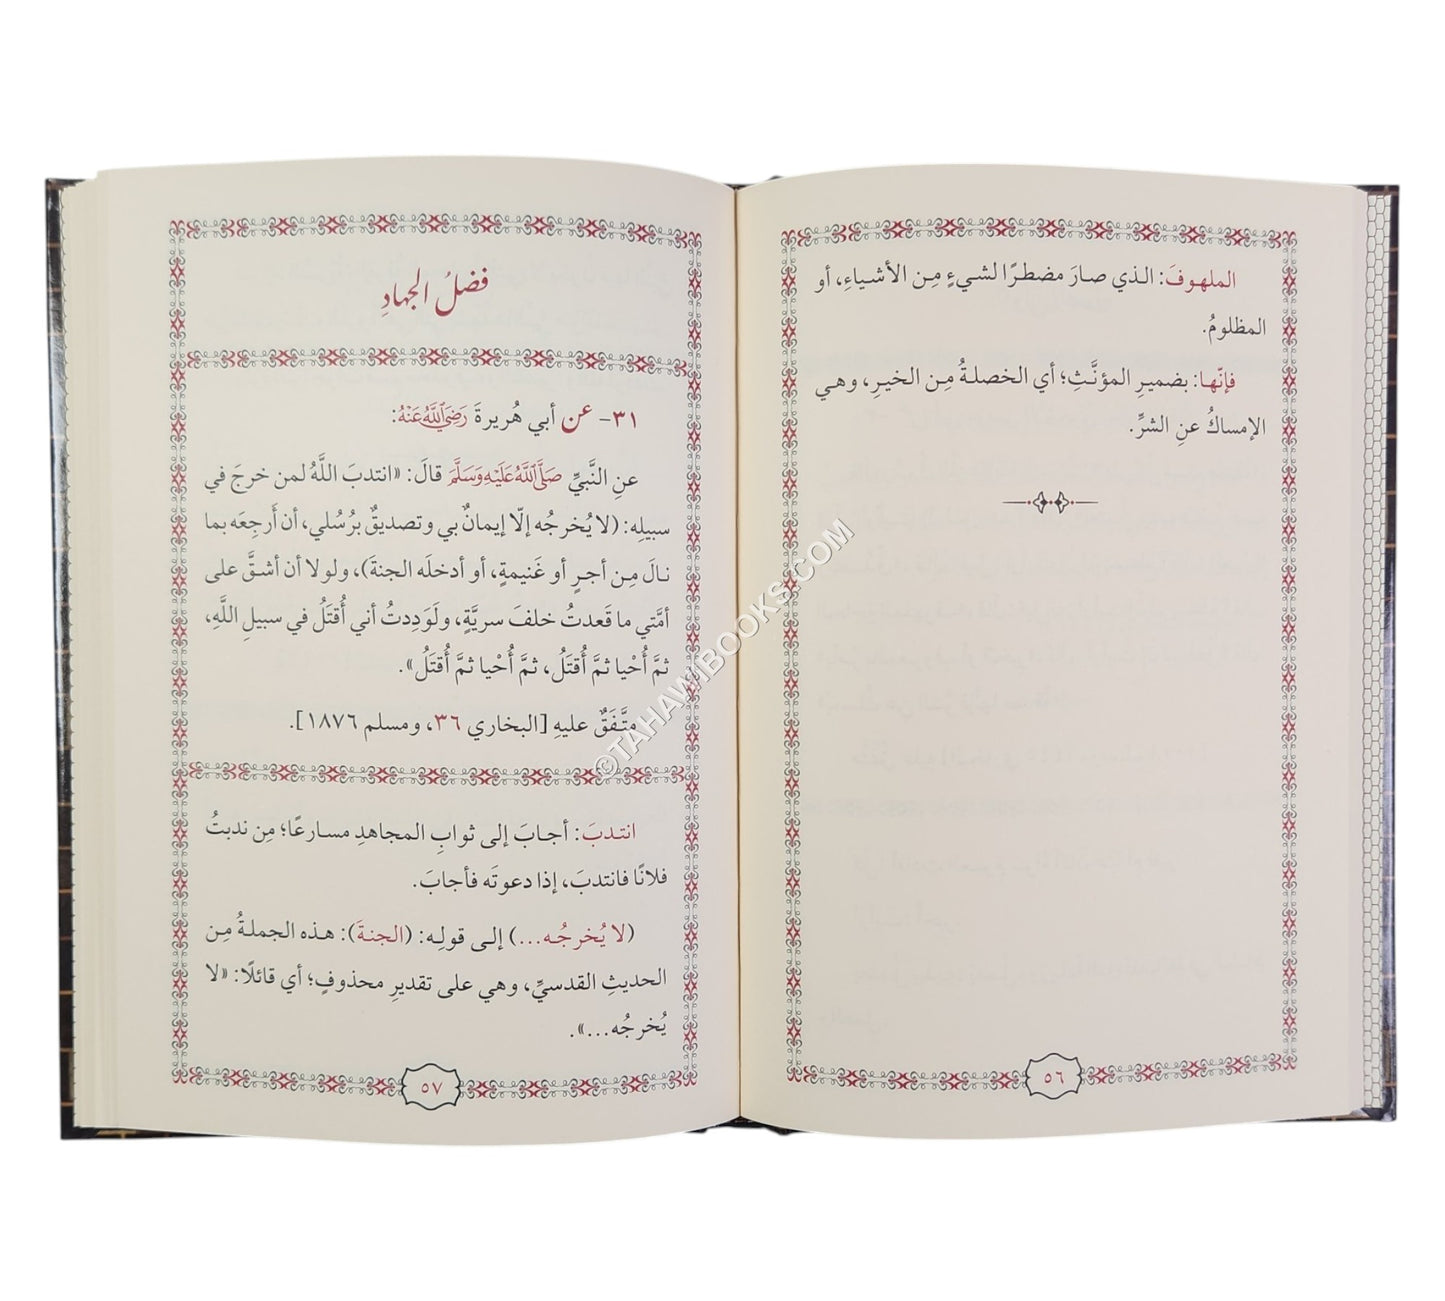 الملهوفَ: الذي صارَ مضطرًا لشيءٍ مِن الأشياءِ، أو
المظلومُ.
فإنّها: بضميرِ المؤنَّثِ؛ أي الخصلةُ مِن الخيرِ، وهي
الإمساكُ عنِ الشرِّ.
٥٦
فضلُ الجهادِ
٣١- عن أبي هُريرةَ رَضِيَ اللَّهُ عَنْهُ:
عنِ النَّبيِّ صَلَّى اللَّهُ عَلَيْهِ وَسَلَّمَ قالَ: «انتدبَ اللَّهُ لمن خرجَ في
سبيلِه: (لا يُخرجُه إلّا إيمانٌ بي وتصديقٌ برُسُلي، أن أَرجِعَه بما
نالَ مِن أجرٍ أو غَنيمةٍ، أو أدخلَه الجنةَ)، ولولا أن أشقَّ على
أمَّتي ما قَعدتُ خلفَ سريَّةٍ، ولَوَدِدتُ أني أُقتَلُ في سبيلِ اللَّهِ،
ثمَّ أُحْيا ثمَّ أُقتَلُ، ثمَّ أُحْيا ثمَّ أُقتَلُ».
متَّفَقٌ عليهِ [البخاري ٣٦، ومسلم ١٨٧٦].
انتدبَ: أجابَ إلى ثوابِ المجاهدِ مسارعًا؛ مِن ندبتُ
فلانًا فانتدبَ، إذا دعوتَه فأجابَ.
(لا يُخرجُه...) إلى قولِه: (الجنةَ): هذه الجملةُ مِن
الحديثِ القدسيِّ، وهي على تقديرِ محذوفٍ؛ أي قائلًا: «لا
يُخرجُه...».
٥٧
©TAHAWIBOOKS.COM